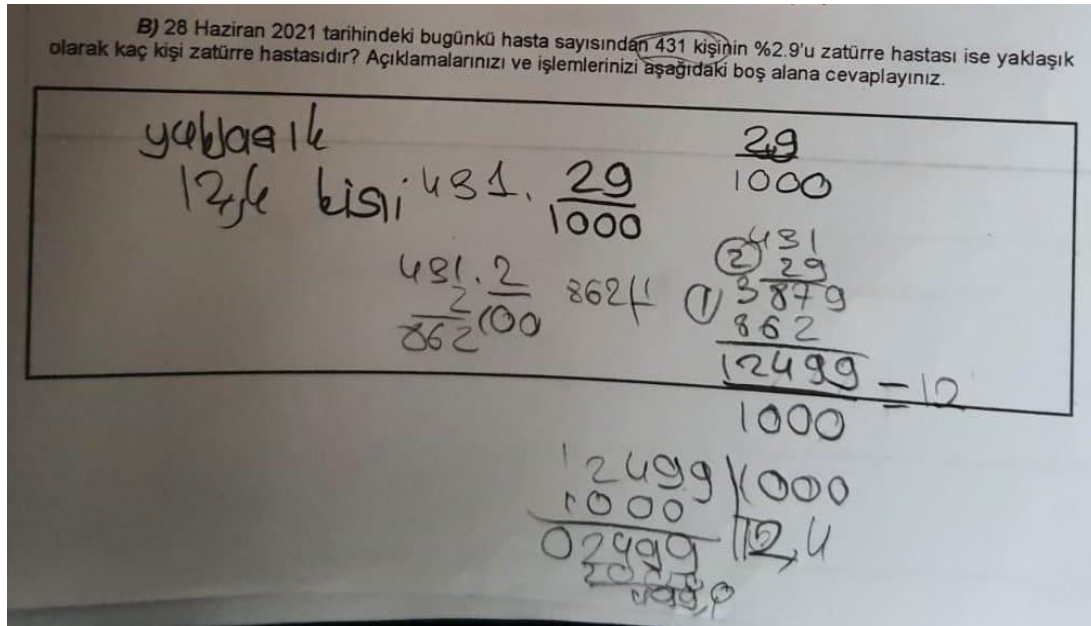 B) 28 Haziran 2021 tarihindeki bugünkü hasta sayısından 431 kişinin %2.9'u zatürre hastası ise yaklaşık
olarak kaç kişi zatürre hastasıdır? Açıklamalarınızı ve işlemlerinizi aşağıdaki boş alana cevaplayınız.
yaklaşık
12,4 kişi
431. 29
1000
29
1000
431. 2
2 100
862
862
② 431
29
① 3879
862
12499 = 12
1000
12499 1000
1000 12,4
02499
499,0